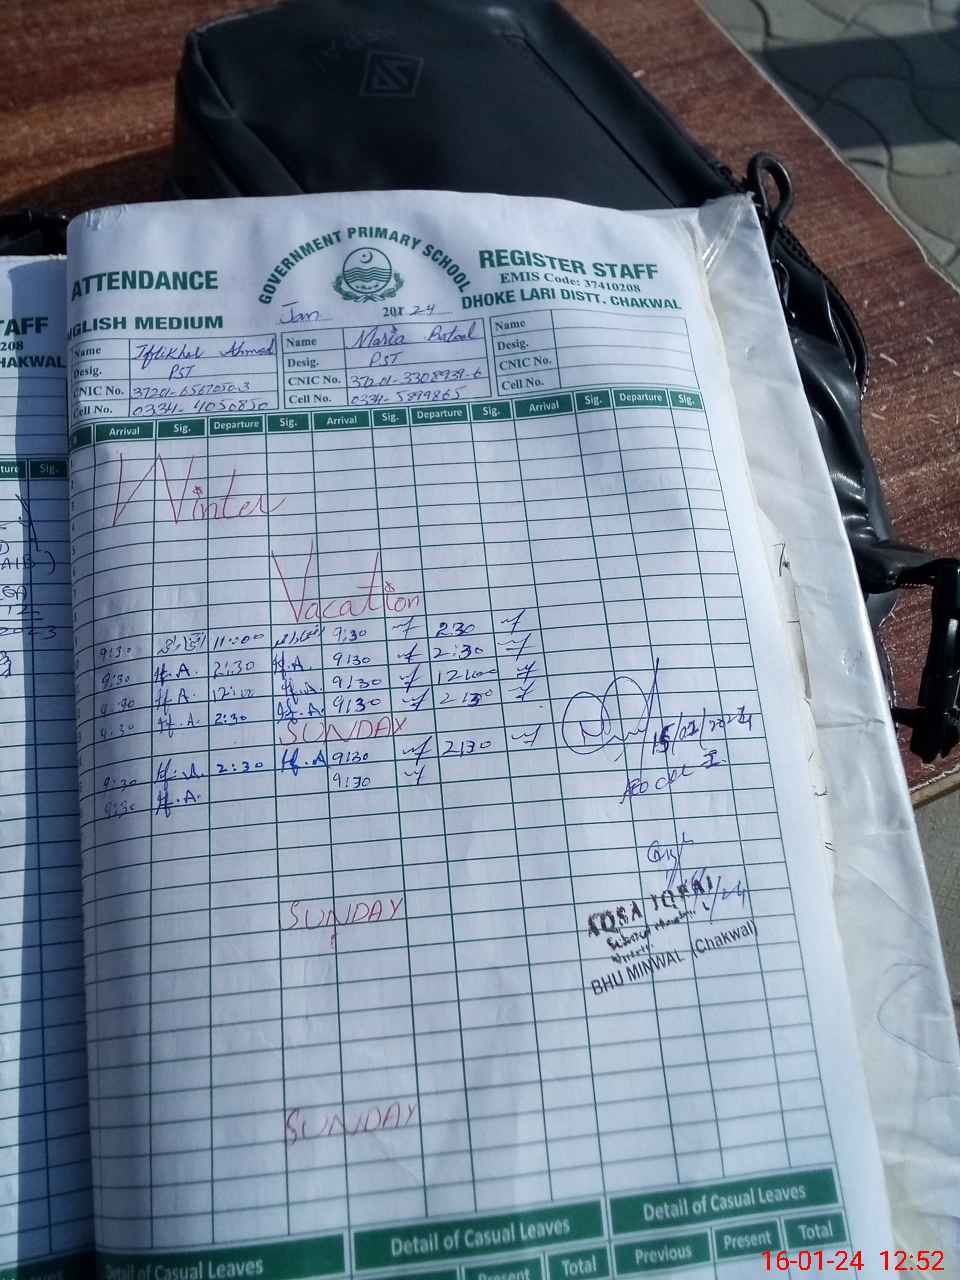 ATTENDANCE
GOVERNMENT PRIMARY SCHOOL
REGISTER STAFF
EMIS Code: 37410208
DHOKE LARI DISTT. CHAKWAL
GLISH MEDIUM
Jan 201 24
TAFF
208
HAKWAL
Name Iftikhar Ahmed Name Maria Batool Name
Desig. PST Desig. PST Desig.
CNIC No. 37201-6567050-3 CNIC No. 37201-3308939-6 CNIC No.
Cell No. 0334-4050850 Cell No. 0334-5899865 Cell No.
ture Sig. Arrival Sig. Departure Sig. Arrival Sig. Departure Sig. Arrival Sig. Departure Sig.
Winter
Vacation
9:30 11:00 9:30 2:30
9:30 H.A. 2:30 H.A. 9:30 2:30
9:30 H.A. H.A. 9:30 12:00
9:30 H.A. 2:30 H.A. 9:30 2:30
SUNDAY
9:30 H.A. 2:30 H.A 9:30 2:30 15/01/2024
9:30 H.A. 9:30
SUNDAY
AQSA IQBAL
BHU MINWAL (Chakwal)
SUNDAY
Detail of Casual Leaves Detail of Casual Leaves Detail of Casual Leaves
Present Total Previous Present Total
16-01-24 12:52